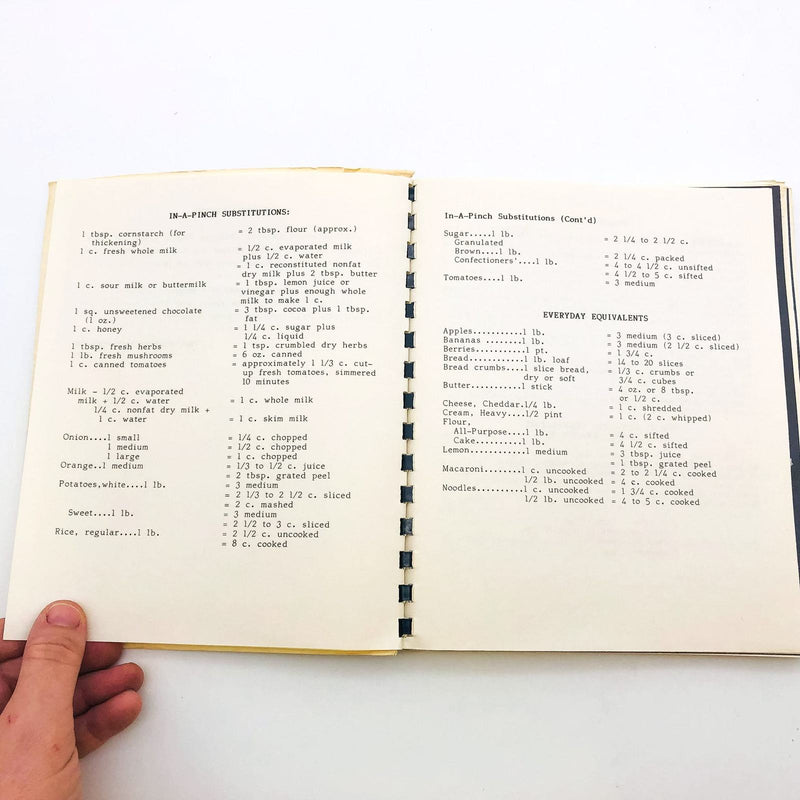 IN-A-PINCH SUBSTITUTIONS:
1 tbsp. cornstarch (for = 2 tbsp. flour (approx.)
thickening)
1 c. fresh whole milk = 1/2 c. evaporated milk
plus 1/2 c. water
= 1 c. reconstituted nonfat
dry milk plus 2 tbsp. butter
1 c. sour milk or buttermilk = 1 tbsp. lemon juice or
vinegar plus enough whole
milk to make 1 c.
1 sq. unsweetened chocolate = 3 tbsp. cocoa plus 1 tbsp.
(1 oz.) fat
1 c. honey = 1 1/4 c. sugar plus
1/4 c. liquid
1 tbsp. fresh herbs = 1 tsp. crumbled dry herbs
1 lb. fresh mushrooms = 6 oz. canned
1 c. canned tomatoes = approximately 1 1/3 c. cut-
up fresh tomatoes, simmered
10 minutes
Milk - 1/2 c. evaporated
milk + 1/2 c. water = 1 c. whole milk
1/4 c. nonfat dry milk +
1 c. water = 1 c. skim milk
Onion....1 small = 1/4 c. chopped
1 medium = 1/2 c. chopped
1 large = 1 c. chopped
Orange..1 medium = 1/3 to 1/2 c. juice
= 2 tbsp. grated peel
Potatoes,white....1 lb. = 3 medium
= 2 1/3 to 2 1/2 c. sliced
= 2 c. mashed
Sweet....1 lb. = 3 medium
= 2 1/2 to 3 c. sliced
Rice, regular....1 lb. = 2 1/2 c. uncooked
= 8 c. cooked
In-A-Pinch Substitutions (Cont'd)
Sugar.....1 lb.
Granulated = 2 1/4 to 2 1/2 c.
Brown....1 lb. = 2 1/4 c. packed
Confectioners'....1 lb. = 4 to 4 1/2 c. unsifted
= 4 1/2 to 5 c. sifted
Tomatoes....1 lb. = 3 medium
EVERYDAY EQUIVALENTS
Apples...........1 lb. = 3 medium (3 c. sliced)
Bananas ........1 lb. = 3 medium (2 1/2 c. sliced)
Berries..........1 pt. = 1 3/4 c.
Bread............1 lb. loaf = 14 to 20 slices
Bread crumbs....1 slice bread, = 1/3 c. crumbs or
dry or soft 3/4 c. cubes
Butter...........1 stick = 4 oz. or 8 tbsp.
or 1/2 c.
Cheese, Cheddar.1/4 lb. = 1 c. shredded
Cream, Heavy....1/2 pint = 1 c. (2 c. whipped)
Flour,
All-Purpose....1 lb. = 4 c. sifted
Cake.........1 lb. = 4 1/2 c. sifted
Lemon............1 medium = 3 tbsp. juice
= 1 tbsp. grated peel
Macaroni........1 c. uncooked = 2 to 2 1/4 c. cooked
1/2 lb. uncooked = 4 c. cooked
Noodles..........1 c. uncooked = 1 3/4 c. cooked
1/2 lb. uncooked = 4 to 5 c. cooked